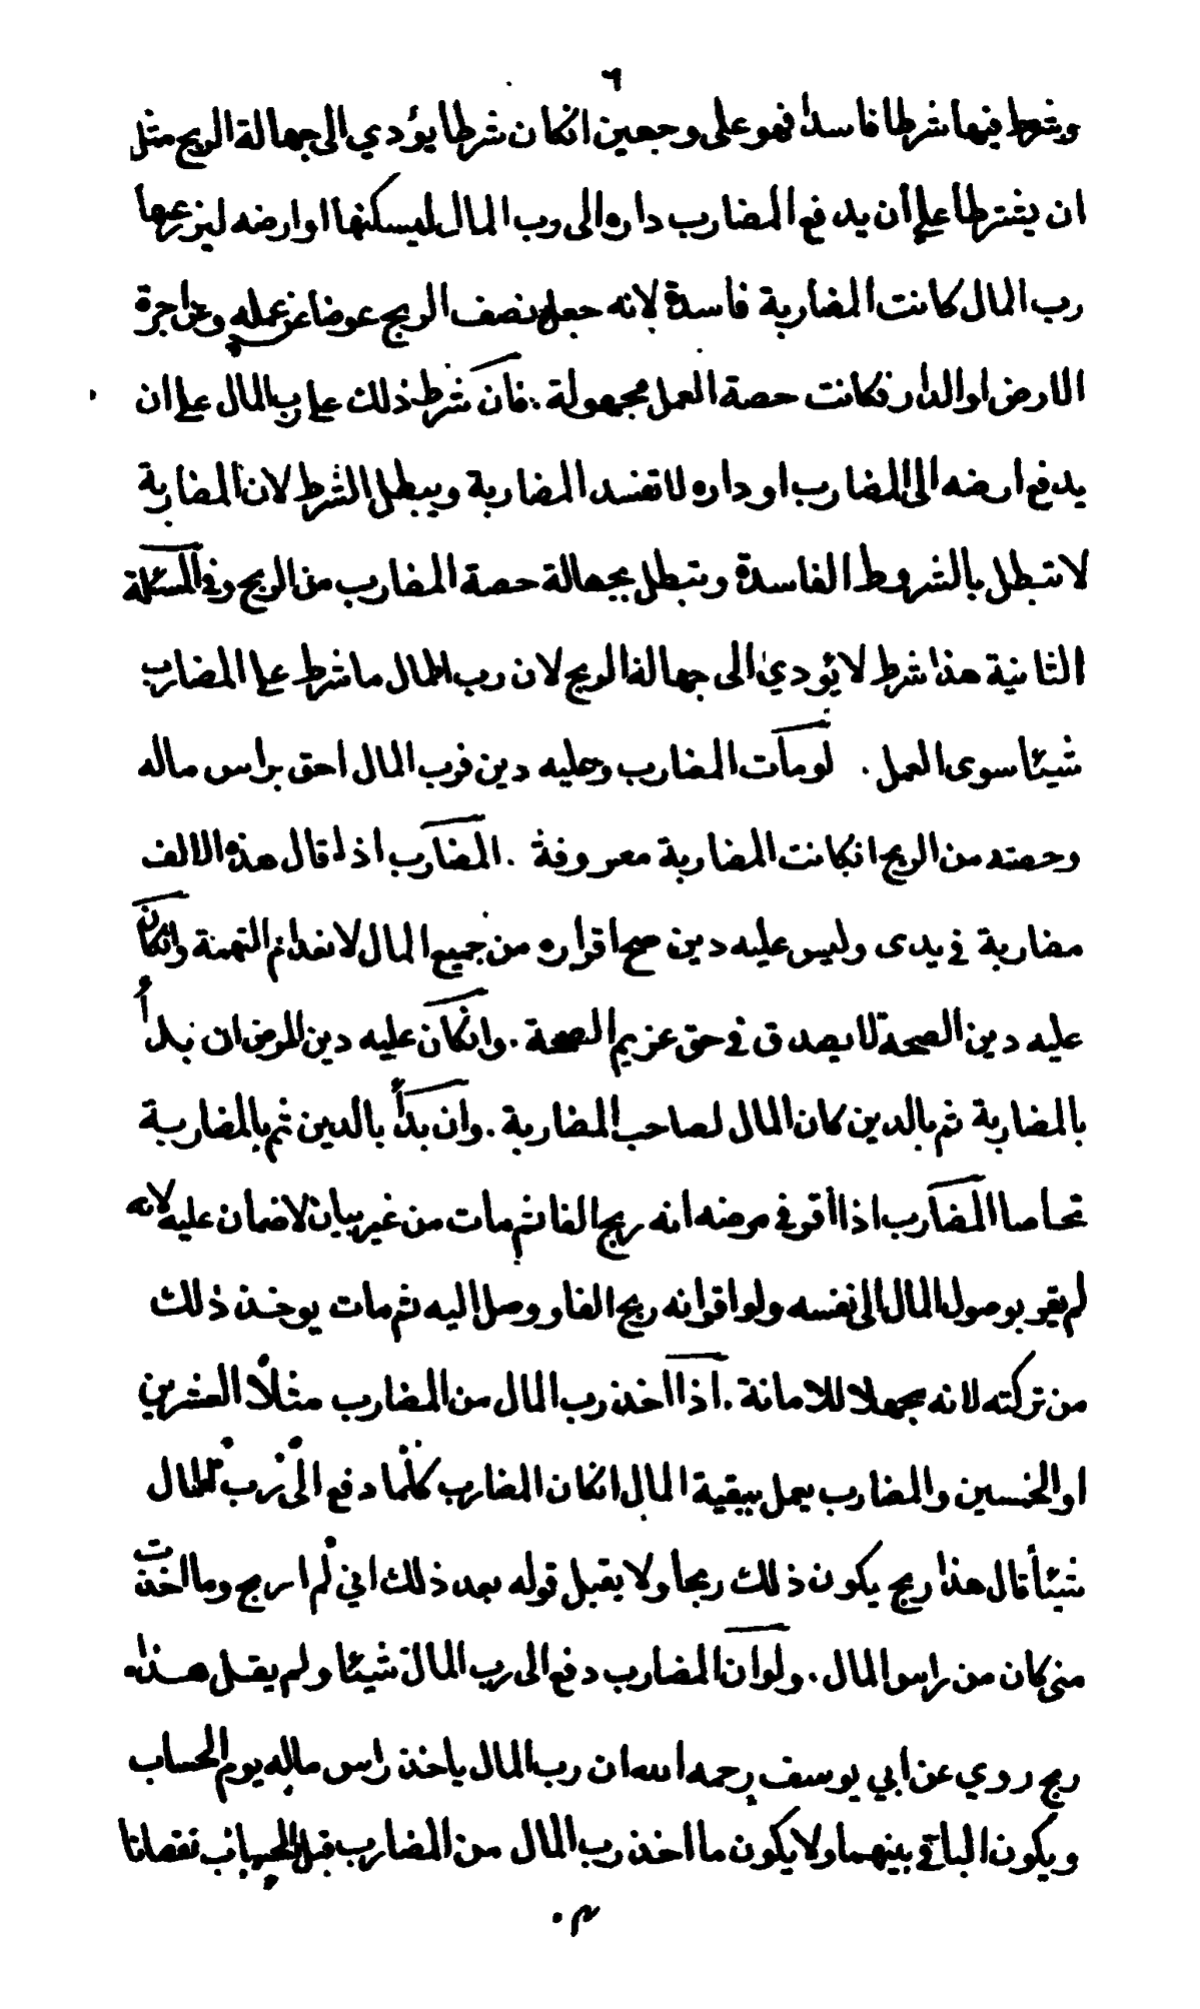 ٦
ويشترط فيها شرطا فاسدا فهو على وجهين انكان شرطا يؤدي الى جهالة الربح مثل
ان يشترطا على أن يدفع المضارب داره الى رب المال ليسكنها او ارضه ليزرعها
رب المال كانت المضاربة فاسدة لانه جعل نصف الربح عوضا عن عمله وعن اجرة
الارض او الدار فكانت حصة العمل مجهولة . فان شرط ذلك على رب المال على ان
يدفع ارضه الى المضارب او داره لا تفسد المضاربة ويبطل الشرط لان المضاربة
لا تبطل بالشروط الفاسدة وتبطل بجهالة حصة المضارب من الربح وفي المسئلة
الثانية هذا شرط لا يؤدي الى جهالة الربح لان رب المال ما شرط على المضارب
شيئا سوى العمل . لو مات المضارب وعليه دين فرب المال احق براس ماله
وحصته من الربح انكانت المضاربة معروفة . المضارب اذا قال هذه الالف
مضاربة في يدى وليس عليه دين صح اقراره من جميع المال لانعدام التهمة وانكان
عليه دين الصحة لا يصدق في حق غريم الصحة . وانكان عليه دين المرض ان بدأ
بالمضاربة ثم بالدين كان المال لصاحب المضاربة . وان بدأ بالدين ثم بالمضاربة
تحاصا المضارب اذا أقر في مرضه انه ربح الفا ثم مات من غير بيان لا ضمان عليه لانه
لم يقر بوصول المال الى نفسه ولو اقر انه ربح الفا ووصل اليه ثم مات يوخذ ذلك
من تركته لانه مجهلا للامانة . اذا اخذ رب المال من المضارب مثلا العشرين
او الخمسين والمضارب يعمل ببقية المال انكان المضارب كلما دفع الى رب المال
شيئا قال هذا ربح يكون ذلك ربحا ولا يقبل قوله بعد ذلك اني لم اربح وما اخذت
مني كان من راس المال . ولو ان المضارب دفع الى رب المال شيئا ولم يقل هذا
ربح روي عن ابي يوسف رحمه الله ان رب المال ياخذ راس ماله يوم الحساب
ويكون الباقي بينهما ولا يكون ما اخذ رب المال من المضارب قبل الحساب نقصانا